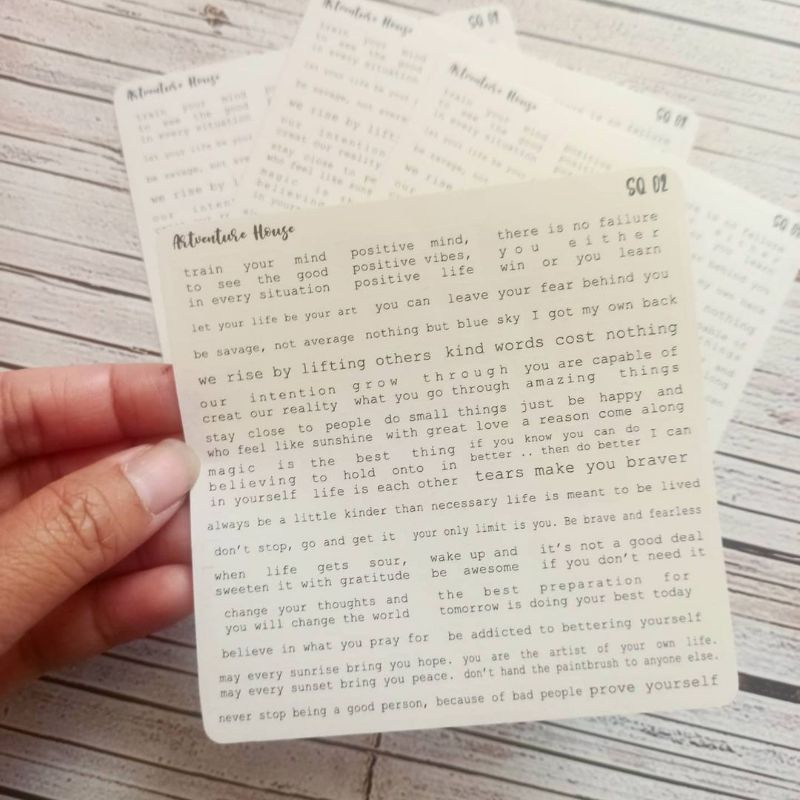 Artventure House
SQ 01
Artventure House
train your mind
to see the good
in every situation
Artventure House
SQ 01
train your mind
to see the good
in every situation
Artventure House
train your mind
to see the good
in every situation
SQ 02
Artventure House
train your mind positive mind, there is no failure
to see the good positive vibes, you either
in every situation positive life win or you learn
let your life be your art you can leave your fear behind you
be savage, not average nothing but blue sky I got my own back
we rise by lifting others kind words cost nothing
our intention grow through you are capable of
creat our reality what you go through amazing things
stay close to people do small things just be happy and
who feel like sunshine with great love a reason come along
magic is the best thing if you know you can do I can
believing to hold onto in better .. then do better
in yourself life is each other tears make you braver
always be a little kinder than necessary life is meant to be lived
don't stop, go and get it your only limit is you. Be brave and fearless
when life gets sour, wake up and it's not a good deal
sweeten it with gratitude be awesome if you don't need it
change your thoughts and the best preparation for
you will change the world tomorrow is doing your best today
believe in what you pray for be addicted to bettering yourself
may every sunrise bring you hope. you are the artist of your own life.
may every sunset bring you peace. don't hand the paintbrush to anyone else.
never stop being a good person, because of bad people prove yourself